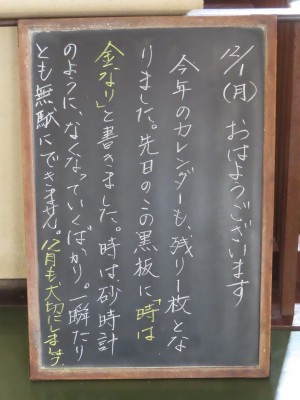 12/1(月) おはようございます
今年のカレンダーも、残り1枚とな
りました。先日のこの黒板に「時は
金なり」と書きました。時は、砂時計
のように、なくなっていくばかり。一瞬たり
とも無駄にできません。12月も大切にします。